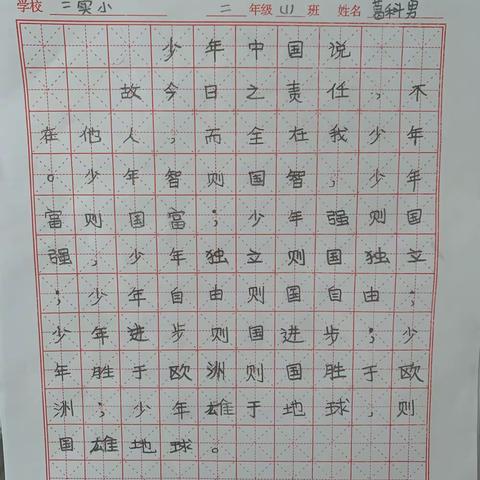 学校 二实小 二 年级 (1) 班 姓名 葛科男
少年中国说
故今日之责任，不
在他人，而全在我少年
。少年智则国智，少年
富则国富；少年强则国
强，少年独立则国独立
；少年自由则国自由；
少年进步则国进步；少
年胜于欧洲则国胜于欧
洲；少年雄于地球，则
国雄地球。